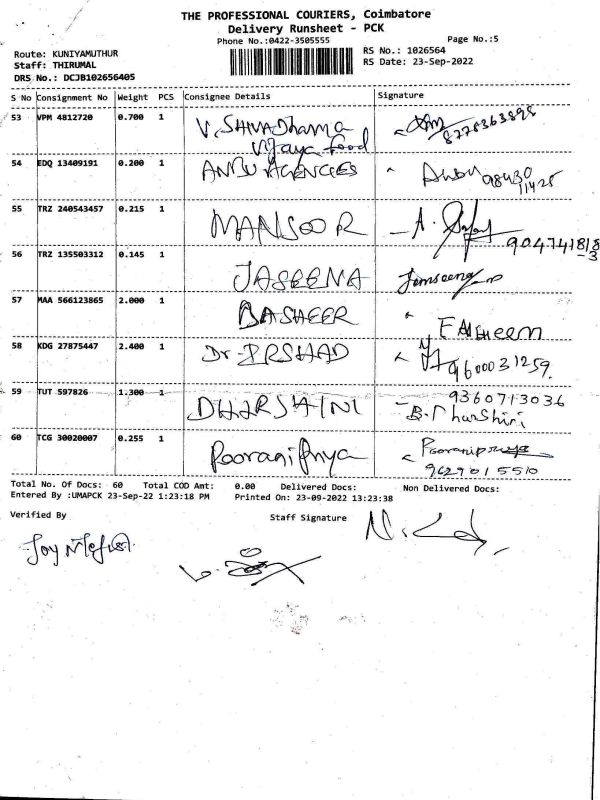 THE PROFESSIONAL COURIERS, Coimbatore
Delivery Runsheet - PCK
Phone No.:0422-3505555
Page No.:5
Route: KUNIYAMUTHUR
RS No.: 1026564
Staff: THIRUMAL
RS Date: 23-Sep-2022
DRS No.: DCJB102656405
S No Consignment No Weight PCS Consignee Details Signature
53 VPM 4812720 0.700 1 V. SHIVADhama
Vijaya food 8778363898
54 EDQ 13409191 0.200 1 ANBU AGENCIES Anbu 98430
11425
55 TRZ 240543457 0.215 1 MANSOOR
904741818
-3
56 TRZ 135503312 0.145 1 JASEENA
57 MAA 566123865 2.000 1 BASHEER
58 KDG 27875447 2.400 1 Dr. IRSHAD 9600031259.
59 TUT 597826 1.300 1 DHARSHINI 9360713036
B. Dharshini
60 TCG 30020007 0.255 1 Poorani Priya Pooranipriya
9629015510
Total No. Of Docs: 60 Total COD Amt: 0.00 Delivered Docs: Non Delivered Docs:
Entered By :UMAPCK 23-Sep-22 1:23:18 PM Printed On: 23-09-2022 13:23:38
Verified By Staff Signature